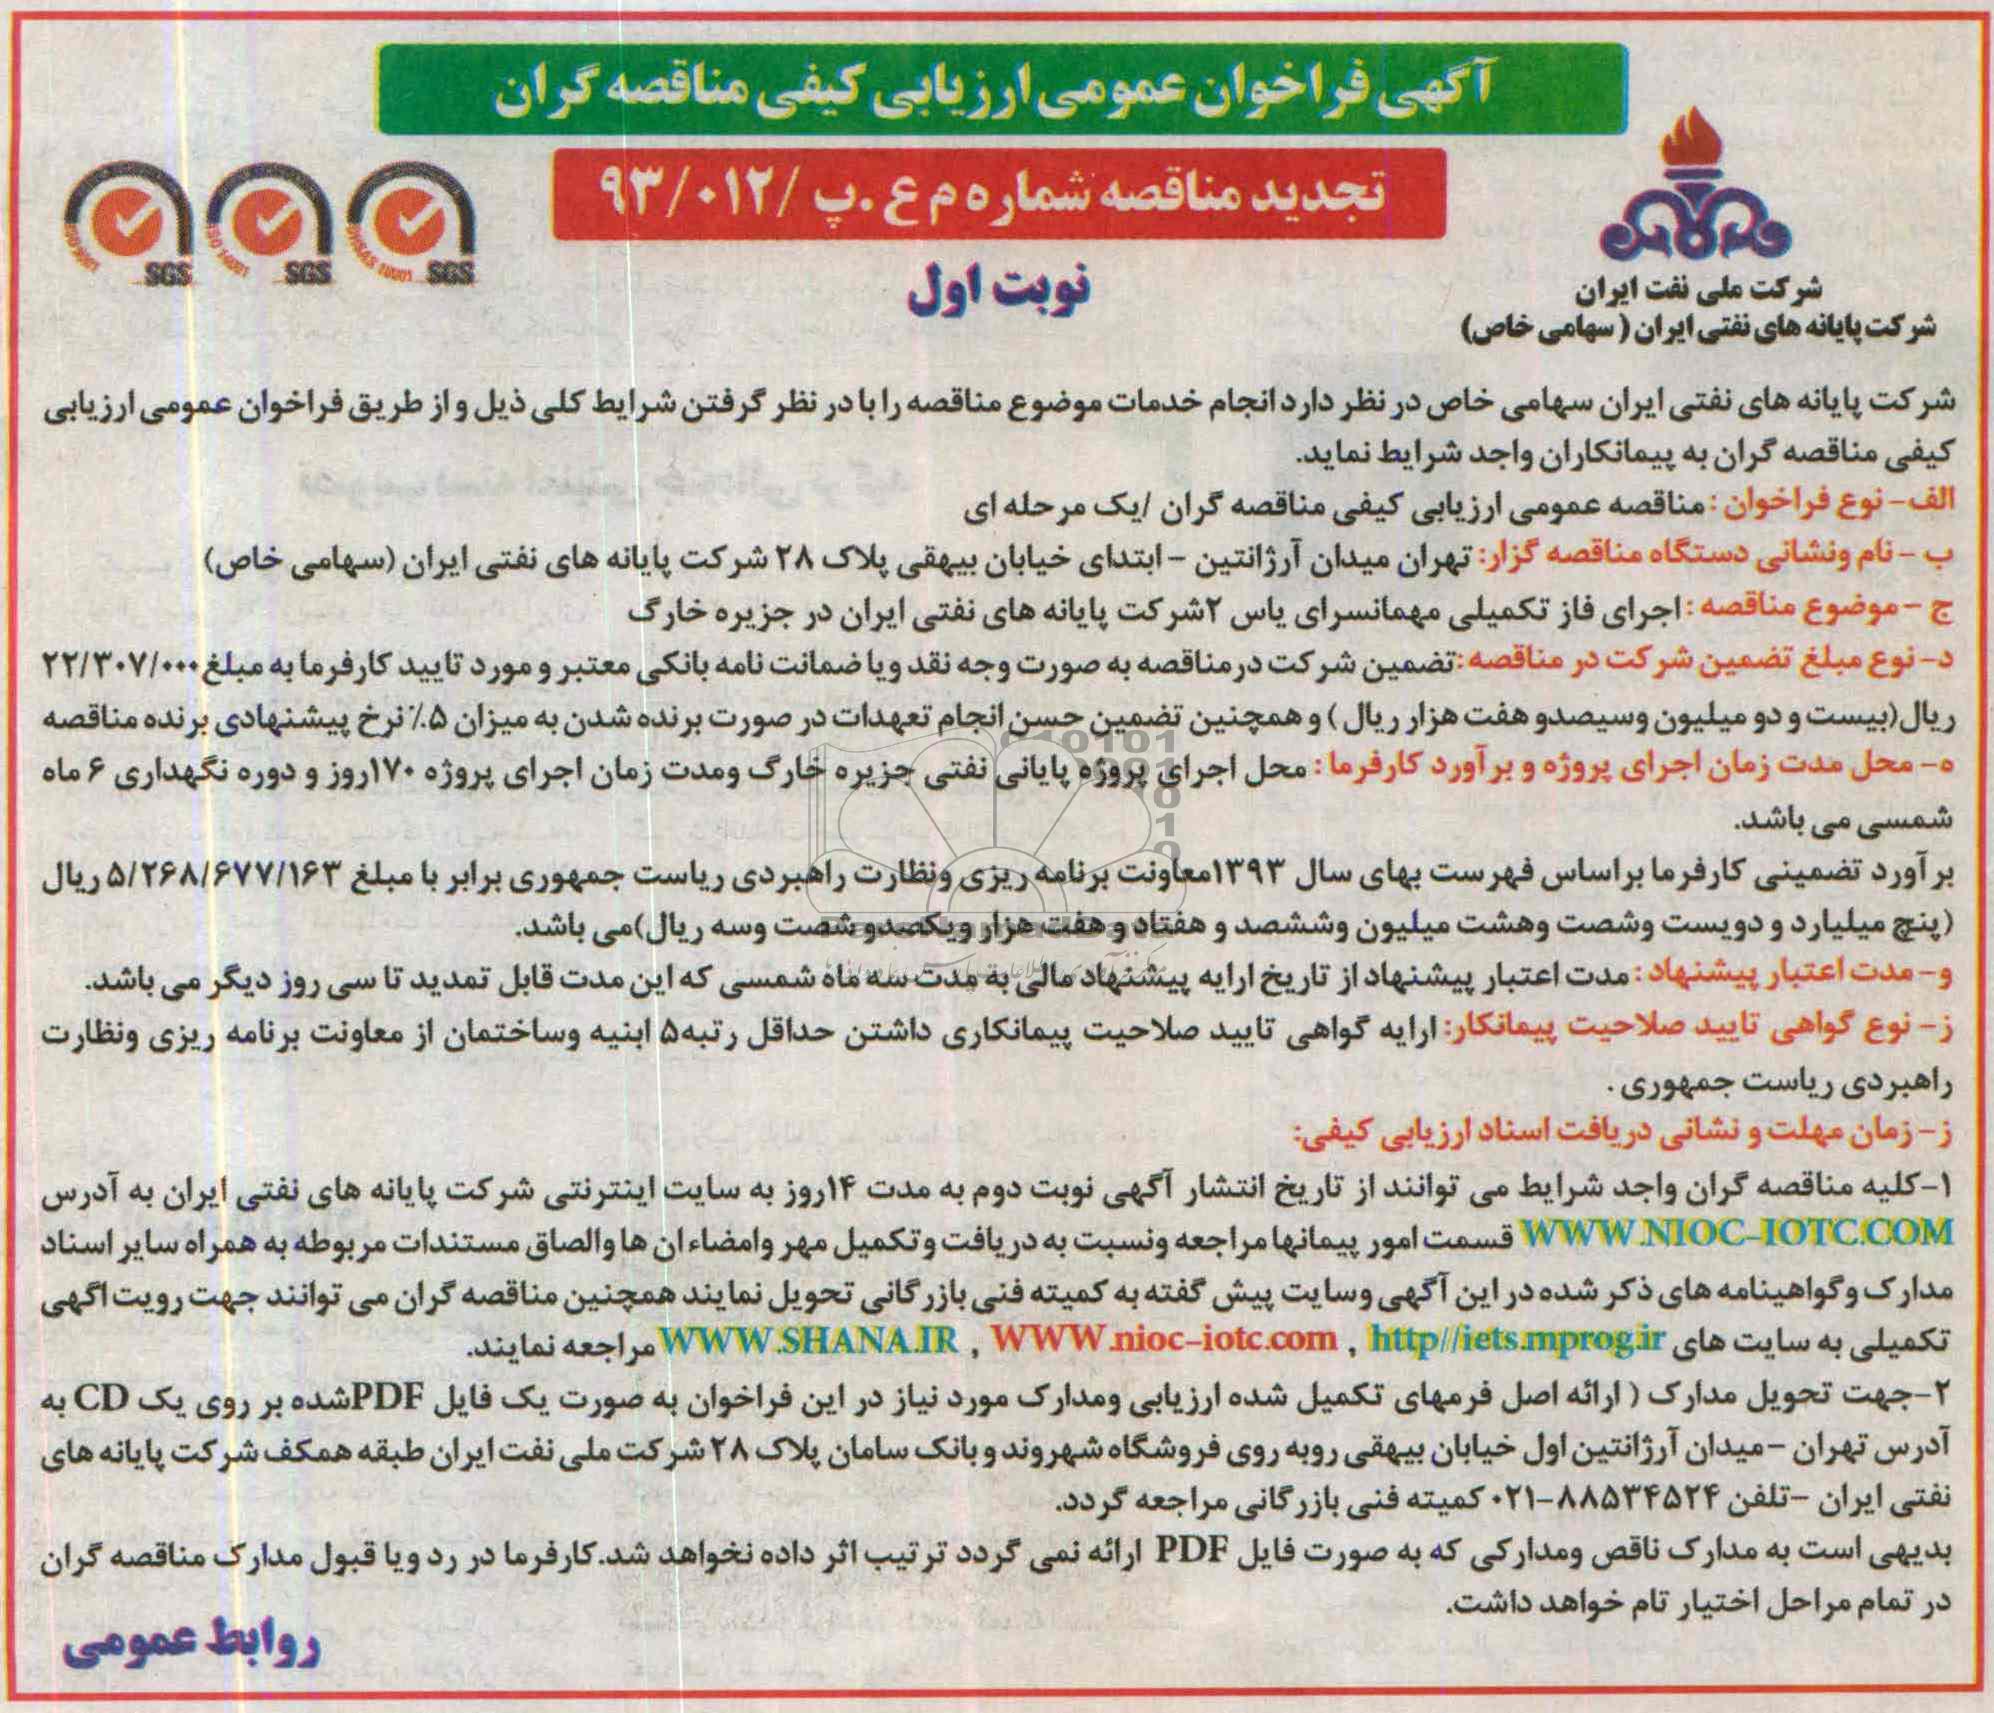 آگهی فراخوان عمومی ارزیابی کیفی مناقصه گران
تجدید مناقصه شماره م ع .پ /۹۳/۰۱۲
نوبت اول
شرکت ملی نفت ایران
شرکت پایانه های نفتی ایران ( سهامی خاص)
ISO 14001
OHSAS 18001
SGS
SGS
SGS
شرکت پایانه های نفتی ایران سهامی خاص در نظر دارد انجام خدمات موضوع مناقصه را با در نظر گرفتن شرایط کلی ذیل و از طریق فراخوان عمومی ارزیابی
کیفی مناقصه گران به پیمانکاران واجد شرایط نماید.
الف- نوع فراخوان : مناقصه عمومی ارزیابی کیفی مناقصه گران /یک مرحله ای
ب – نام ونشانی دستگاه مناقصه گزار: تهران میدان آرژانتین – ابتدای خیابان بیهقی پلاک ۲۸ شرکت پایانه های نفتی ایران (سهامی خاص)
ج – موضوع مناقصه : اجرای فاز تکمیلی مهمانسرای یاس ۲شرکت پایانه های نفتی ایران در جزیره خارگ
د- نوع مبلغ تضمین شرکت در مناقصه :تضمین شرکت درمناقصه به صورت وجه نقد ویا ضمانت نامه بانکی معتبر و مورد تایید کارفرما به مبلغ ۲۲/۳۰۷/۰۰۰
ریال(بیست و دو میلیون وسیصدو هفت هزار ریال ) و همچنین تضمین حسن انجام تعهدات در صورت برنده شدن به میزان ۵٪ نرخ پیشنهادی برنده مناقصه
ه- محل مدت زمان اجرای پروژه و برآورد کارفرما : محل اجرای پروژه پایانی نفتی جزیره خارگ ومدت زمان اجرای پروژه ۱۷۰روز و دوره نگهداری ۶ ماه
شمسی می باشد.
برآورد تضمینی کارفرما براساس فهرست بهای سال ۱۳۹۳معاونت برنامه ریزی ونظارت راهبردی ریاست جمهوری برابر با مبلغ ۵/۲۶۸/۶۷۷/۱۶۳ ریال
(پنج میلیارد و دویست وشصت وهشت میلیون وششصد و هفتاد و هفت هزار ویکصدو شصت وسه ریال)می باشد.
و- مدت اعتبار پیشنهاد : مدت اعتبار پیشنهاد از تاریخ ارایه پیشنهاد مالی به مدت سه ماه شمسی که این مدت قابل تمدید تا سی روز دیگر می باشد.
ز- نوع گواهی تایید صلاحیت پیمانکار: ارایه گواهی تایید صلاحیت پیمانکاری داشتن حداقل رتبه۵ ابنیه وساختمان از معاونت برنامه ریزی ونظارت
راهبردی ریاست جمهوری .
ز- زمان مهلت و نشانی دریافت اسناد ارزیابی کیفی:
۱-کلیه مناقصه گران واجد شرایط می توانند از تاریخ انتشار آگهی نوبت دوم به مدت ۱۴روز به سایت اینترنتی شرکت پایانه های نفتی ایران به آدرس
WWW.NIOC-IOTC.COM قسمت امور پیمانها مراجعه ونسبت به دریافت وتکمیل مهر وامضاء ان ها والصاق مستندات مربوطه به همراه سایر اسناد
مدارک وگواهینامه های ذکر شده در این آگهی وسایت پیش گفته به کمیته فنی بازرگانی تحویل نمایند همچنین مناقصه گران می توانند جهت رویت اگهی
تکمیلی به سایت های http//iets.mprog.ir , WWW.nioc-iotc.com , WWW.SHANA.IR مراجعه نمایند.
۲-جهت تحویل مدارک ( ارائه اصل فرمهای تکمیل شده ارزیابی ومدارک مورد نیاز در این فراخوان به صورت یک فایل PDFشده بر روی یک CD به
آدرس تهران –میدان آرژانتین اول خیابان بیهقی روبه روی فروشگاه شهروند و بانک سامان پلاک ۲۸ شرکت ملی نفت ایران طبقه همکف شرکت پایانه های
نفتی ایران –تلفن ۸۸۵۳۴۵۲۴-۰۲۱ کمیته فنی بازرگانی مراجعه گردد.
بدیهی است به مدارک ناقص ومدارکی که به صورت فایل PDF ارائه نمی گردد ترتیب اثر داده نخواهد شد.کارفرما در رد ویا قبول مدارک مناقصه گران
در تمام مراحل اختیار تام خواهد داشت.
روابط عمومی